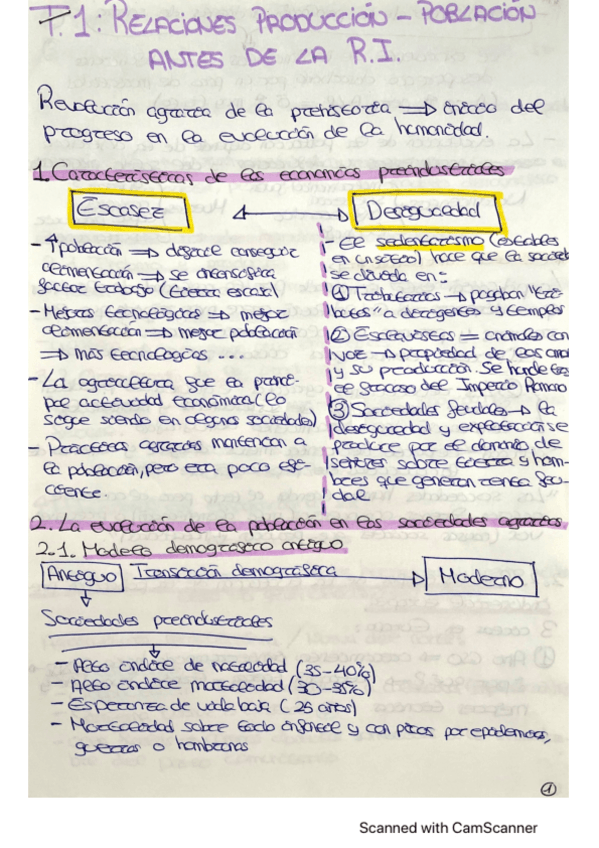 T.1: RELACIONES PRODUCCIÓN - POBLACIÓN
ANTES DE LA R.I.
Revolución agraria de la prehistoria ⇒ inicio del
progreso en la evolución de la humanidad.
1. Características de las economías preindustriales
Escasez ↔ Desigualdad
- ↑ población ⇒ difícil conseguir
alimentación ⇒ se intensifica
factor trabajo (tierra escasa)
- Mejoras tecnológicas ⇒ mejor
alimentación ⇒ mejor población
⇒ más tecnologías ...
- La agricultura fue la princi-
pal actividad económica (lo
sigue siendo en algunas sociedades)
- Prácticas agrarias mantenían a
la población, pero era poco efi-
ciente.
- El sedentarismo (estables
en un sitio) hace que la socied
se divida en:
① Tributarias → pagaban "tri
butos" a dirigentes y templos
② Esclavistas = animales con
voz → propiedad de los amos
y su producción. Se hunde tras
el fracaso del Imperio Romano
③ Sociedades feudales → la
desigualdad y explotación se
produce por el dominio de
señores sobre tierra y hom-
bres que generan renta feu-
dal
2. La evolución de la población en las sociedades agrarias
2.1. Modelo demográfico antiguo
Antiguo Transición demográfica → Moderno
Sociedades preindustriales
- Alto índice de natalidad (35-40%)
- Alto índice mortalidad (30-35%)
- Esperanza de vida baja (25 años)
- Mortalidad sobre todo infantil y con picos por epidemias,
guerras o hambrunas
①
Scanned with CamScanner